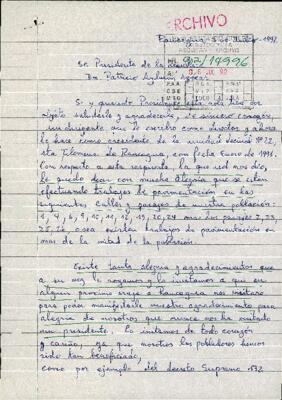 ARCHIVO
92/14996
06 JUL 92
Rancagua, 1992.
Sr Presidente de la República
Dn Patricio Aylwin Azócar
Sr y querido Presidente esta nota tiene por
objeto saludarlo y agradecerle, de sincero corazón,
un dirigente que le escribo como y ahora
lo hace como presidente de la unidad vecinal Nº 22,
Rancagua, con fecha Enero de 1991.
Con respecto a esta respuesta que usted me dio,
le puedo decir con mucha alegría que se están
efectuando trabajos de pavimentación en las
siguientes calles y pasajes de nuestra población:
1, 4, 6, 9, 10, 11, 12, 13, 20, 24 mas los pasajes 2, 23,
25, 26, o sea existen trabajos de pavimentación en
mas de la mitad de la población.
Existe tanta alegría y agradecimientos que
a su vez le rogamos y lo invitamos a que en
alguna proxima viaje a Rancagua, nos visitara
para poder manifestarle nuestro agradecimiento que
alegria de nosotros que nunca nos ha visitado
un presidente, lo invitamos de todo corazón
y cariño, ya que nosotros los pobladores hemos
sido tan beneficiado,
como por ejemplo del decreto Supremo 132